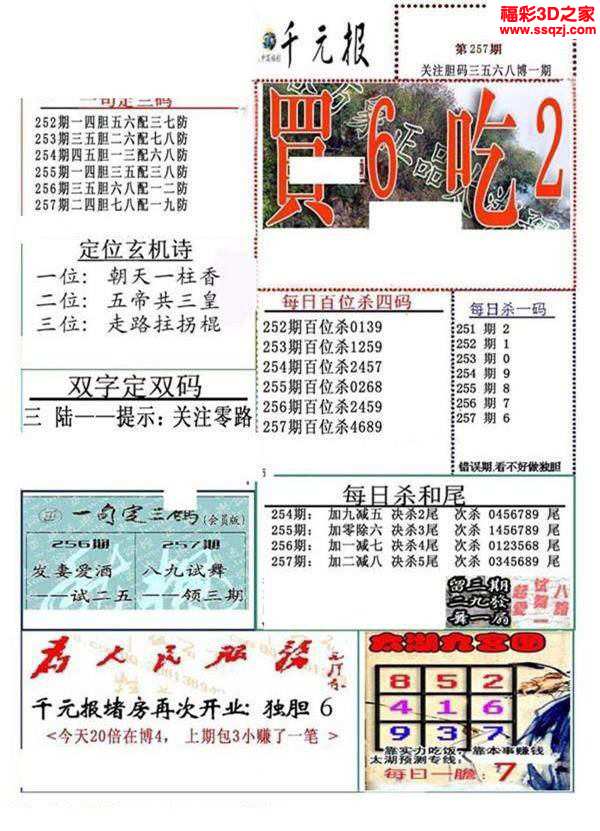 福彩3D之家
www.ssqzj.com
千元报
第257期
关注胆码三五六八博一期
一句定三码
252期一四胆五六配三七防
253期三五胆二六配七八防
254期四五胆一三配六八防
255期一四胆三五配六八防
256期三五胆六八配一二防
257期二四胆七八配一九防
買6吃2
定位玄机诗
一位: 朝天一柱香
二位: 五帝共三皇
三位: 走路拄拐棍
每日百位杀四码
252期百位杀0139
253期百位杀1259
254期百位杀2457
255期百位杀0268
256期百位杀2459
257期百位杀4689
每日杀一码
251 期 2
252 期 1
253 期 0
254 期 9
255 期 8
256 期 7
257 期 6
错误期,看不好做独胆
双字定双码
三 陆——提示:关注零路
每日杀和尾
254期: 加九减五 决杀2尾 次杀 0456789 尾
255期: 加零除六 决杀3尾 次杀 1456789 尾
256期: 加一减七 决杀4尾 次杀 0123568 尾
257期: 加二减八 决杀5尾 次杀 0345689 尾
一句定三码(会员版)
256期
发妻爱酒
——试二五
257期
八九试舞
——领三期
留三期
二九發
舞一廂
为人民服务
千元报堵房再次开业: 独胆 6
<今天20倍在博4, 上期包3小赚了一笔 >
太湖九宫图
8 5 2
4 1 6
9 3 7
靠实力吃饭,靠本事赚钱
太湖预测专线:
每日一胆: 7